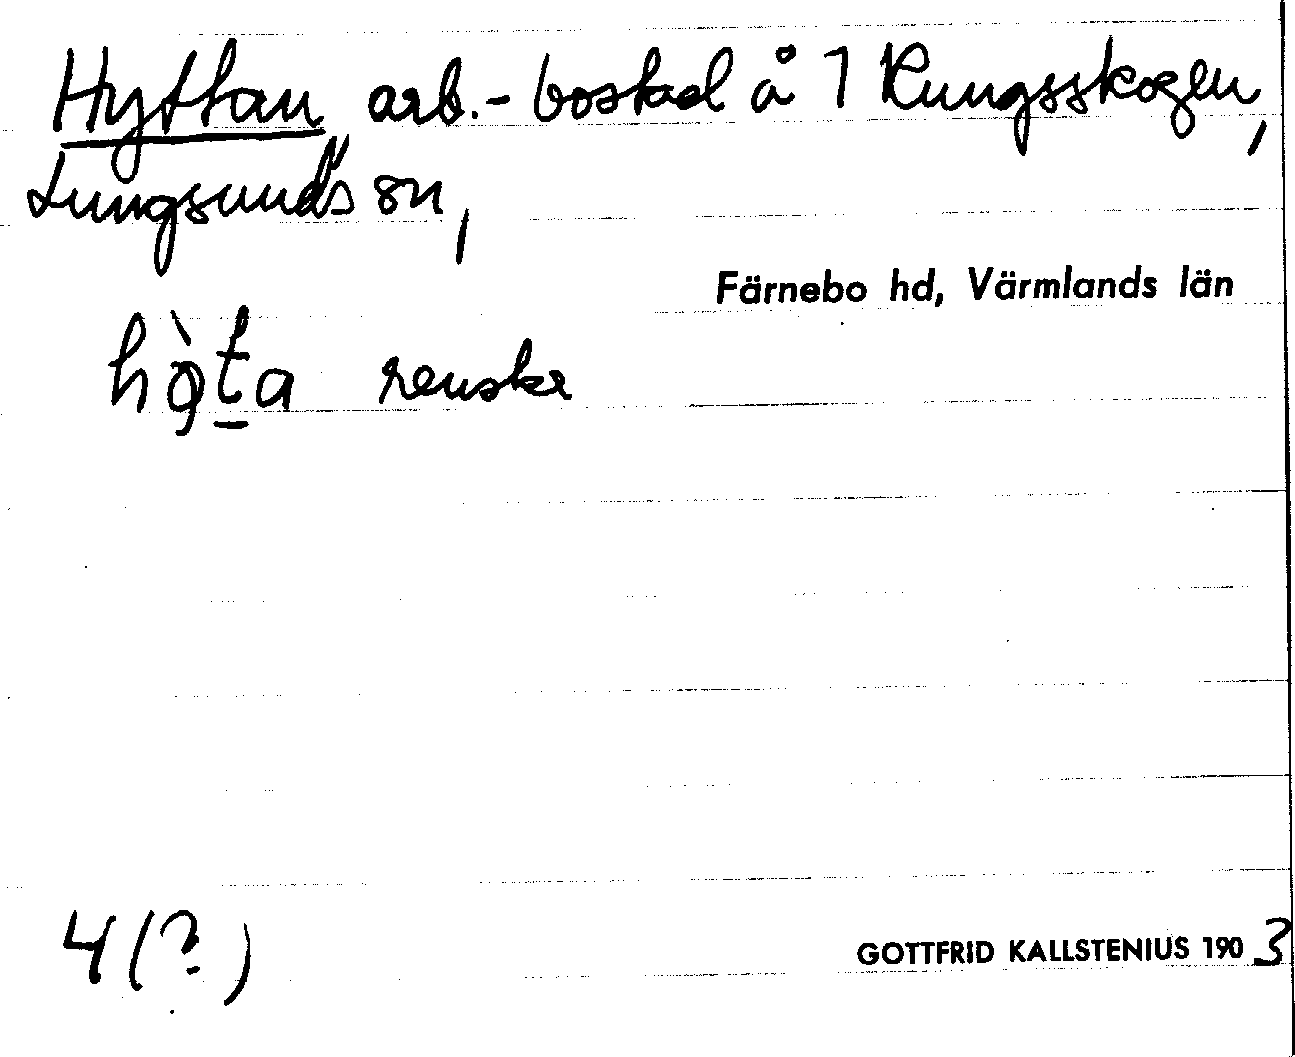 Hyttan, arb.-bostad å 1 Kungsskogen,
Lungsunds sn,
Färnebo hd, Värmlands län
hò̜ṯa renskr
4(?)
GOTTFRID KALLSTENIUS 1903